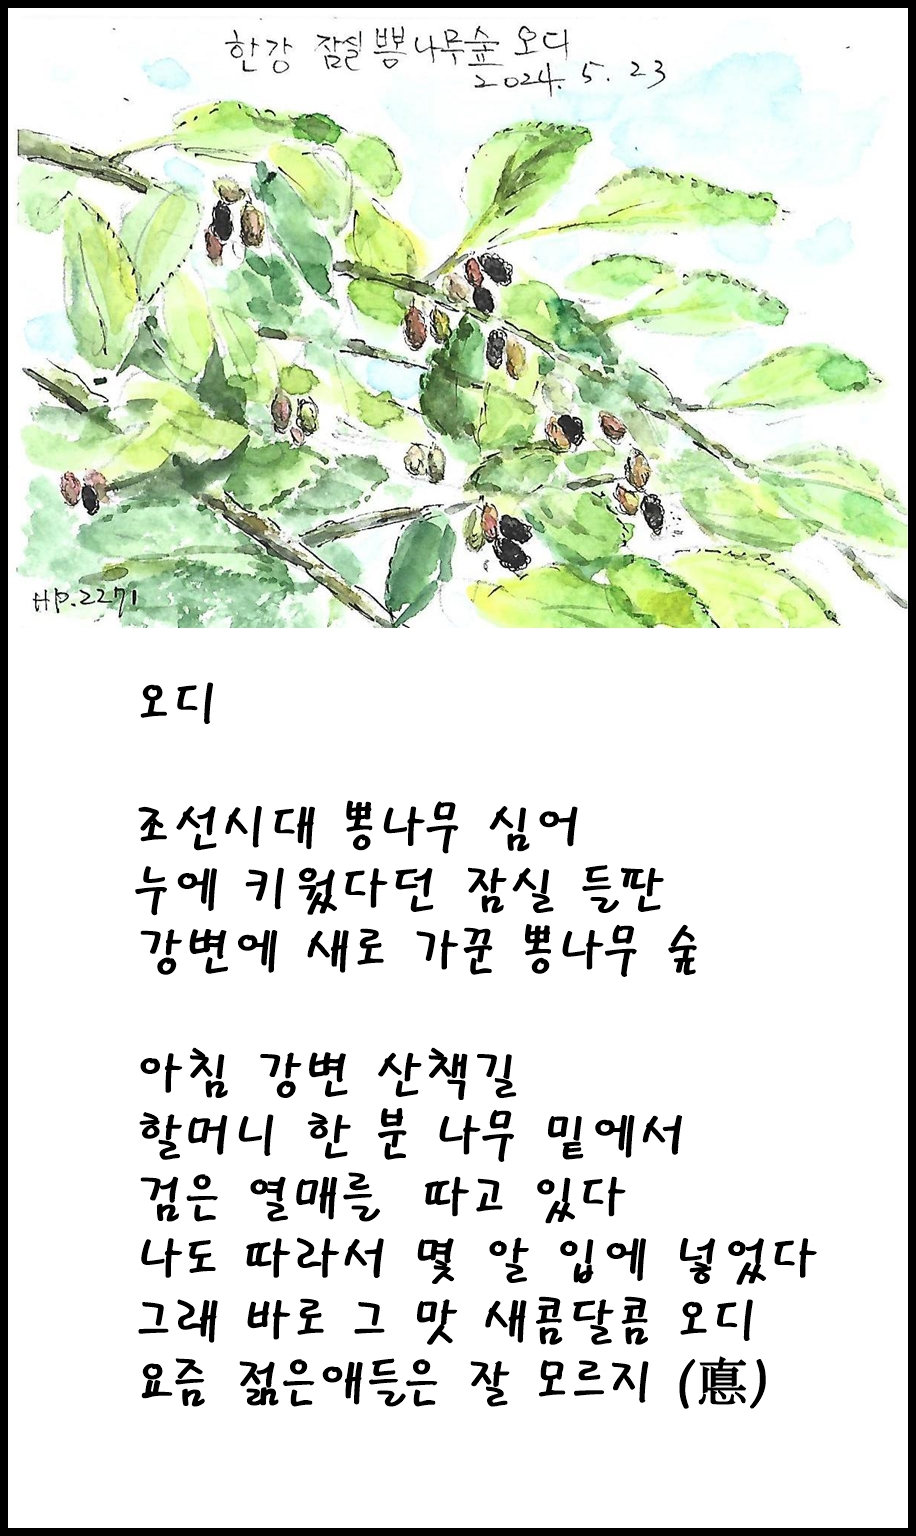 한강 잠실 뽕나무숲 오디
2024. 5. 23
HP.2271
오디
조선시대 뽕나무 심어
누에 키웠다던 잠실 들판
강변에 새로 가꾼 뽕나무 숲
아침 강변 산책길
할머니 한 분 나무 밑에서
검은 열매를 따고 있다
나도 따라서 몇 알 입에 넣었다
그래 바로 그 맛 새콤달콤 오디
요즘 젊은애들은 잘 모르지 (悳)